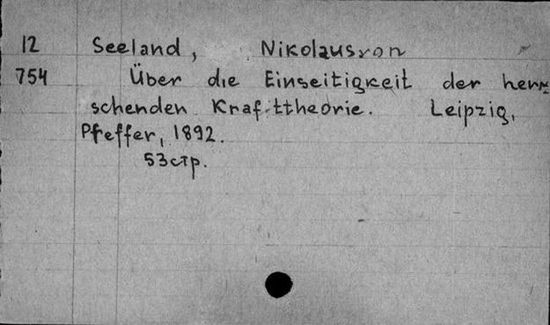 12 Seeland, Nikolaus von
754 Über die Einseitigkeit der herr-
schenden Krafttheorie. Leipzig,
Pfeffer, 1892.
53стр.